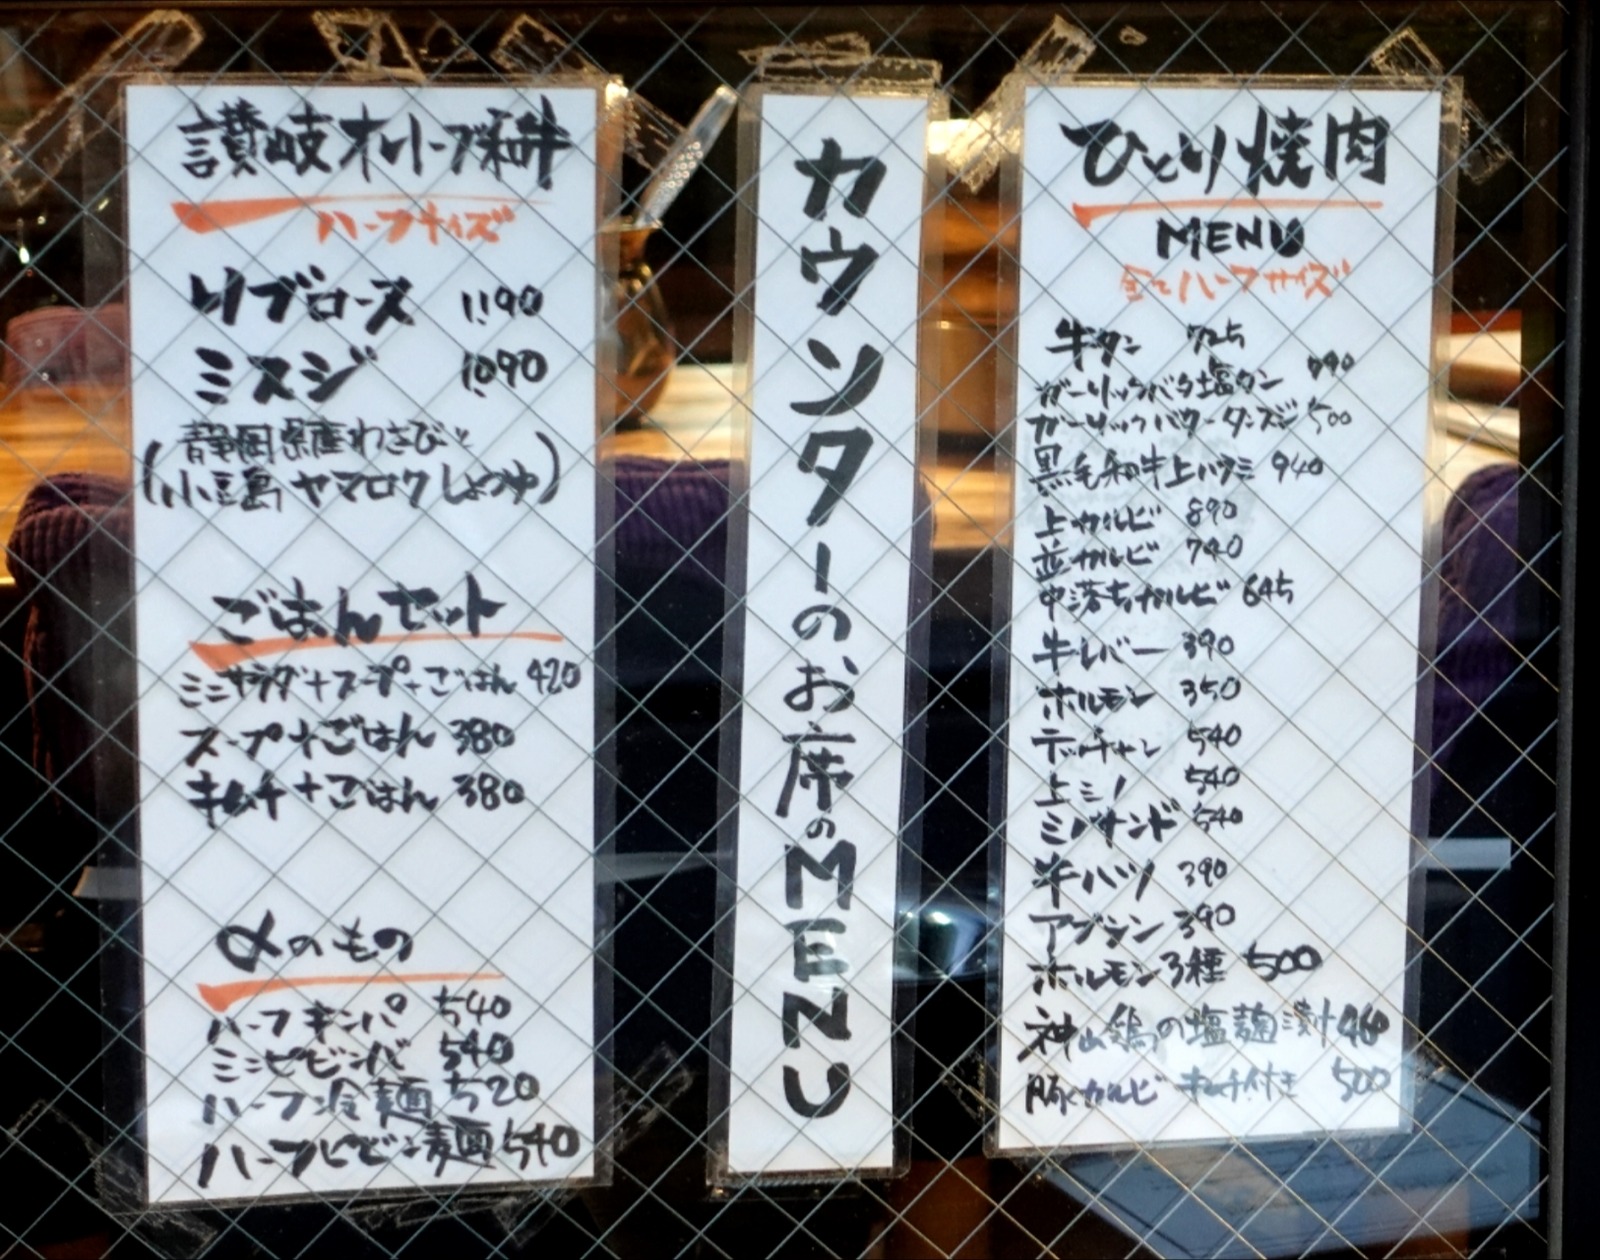 讃岐オリーブ和牛
ハーフサイズ
リブロース 1190
ミスジ 1090
(静岡県産わさびと
小豆島ヤマロクしょうゆ)
ごはんセット
ミニサラダ+スープ+ごはん 420
スープ+ごはん 380
キムチ+ごはん 380
αのもの
ハーフキンパ 540
ミニビビンバ 540
ハーフ冷麺 520
ハーフビビン麺 540
カウンターのお席のMENU
ひとり焼肉
MENU
全てハーフサイズ
牛タン 725
ガーリックバタ塩タン 790
ガーリックバター タンスジ 500
黒毛和牛上ハラミ 940
上カルビ 890
並カルビ 740
中落ちカルビ 645
牛レバー 390
ホルモン 350
テッチャン 540
上ミノ 540
ミノサンド 540
牛ハツ 390
アブシン 390
ホルモン3種 500
神山鶏の塩麹漬け 460
豚カルビ キムチ付き 500